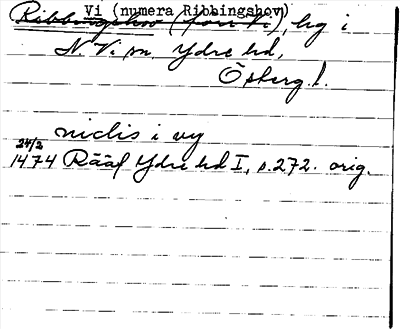 Vi (numera Ribbingshov)
Ribbingshov (förr Vi), hg i
N. Vi sn Ydre hd,
Österg. l.
niclis i vy
24/2
1474 Rääf Ydre hd I, s. 272. orig.